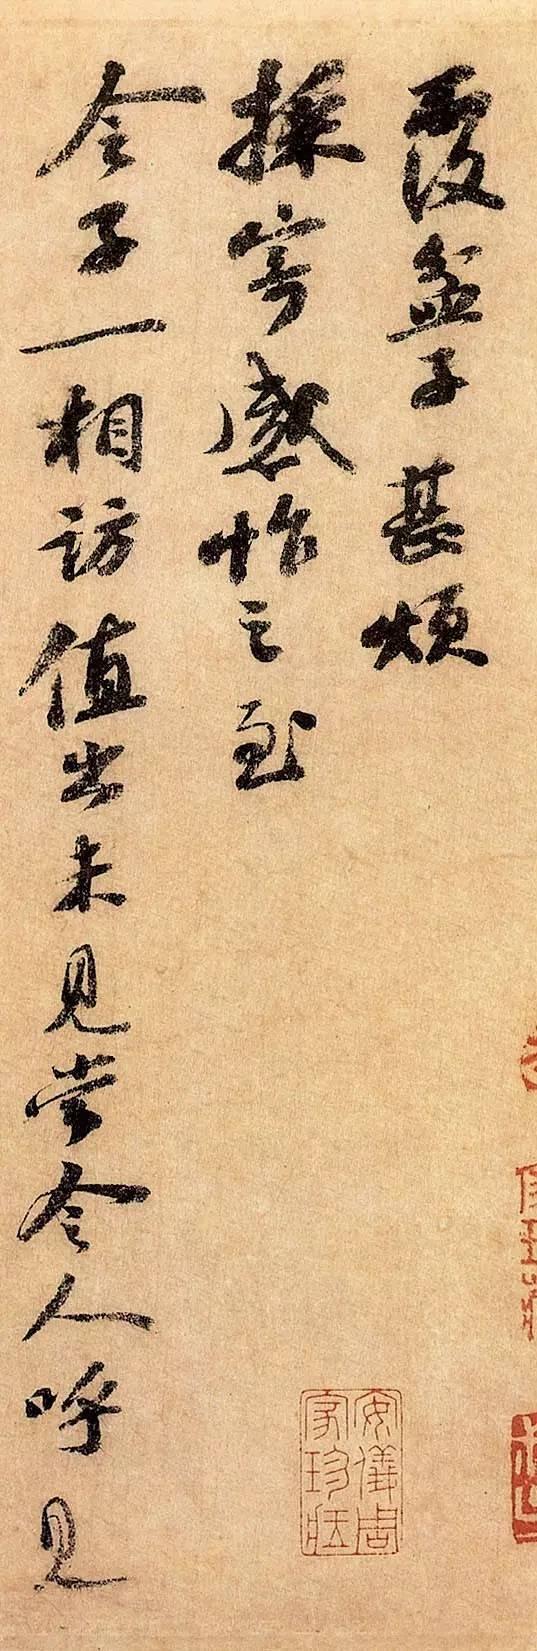 覆盆子甚煩
採寄感怍之至
令子一相訪值出未見當令人呼見
安儀周家珍藏